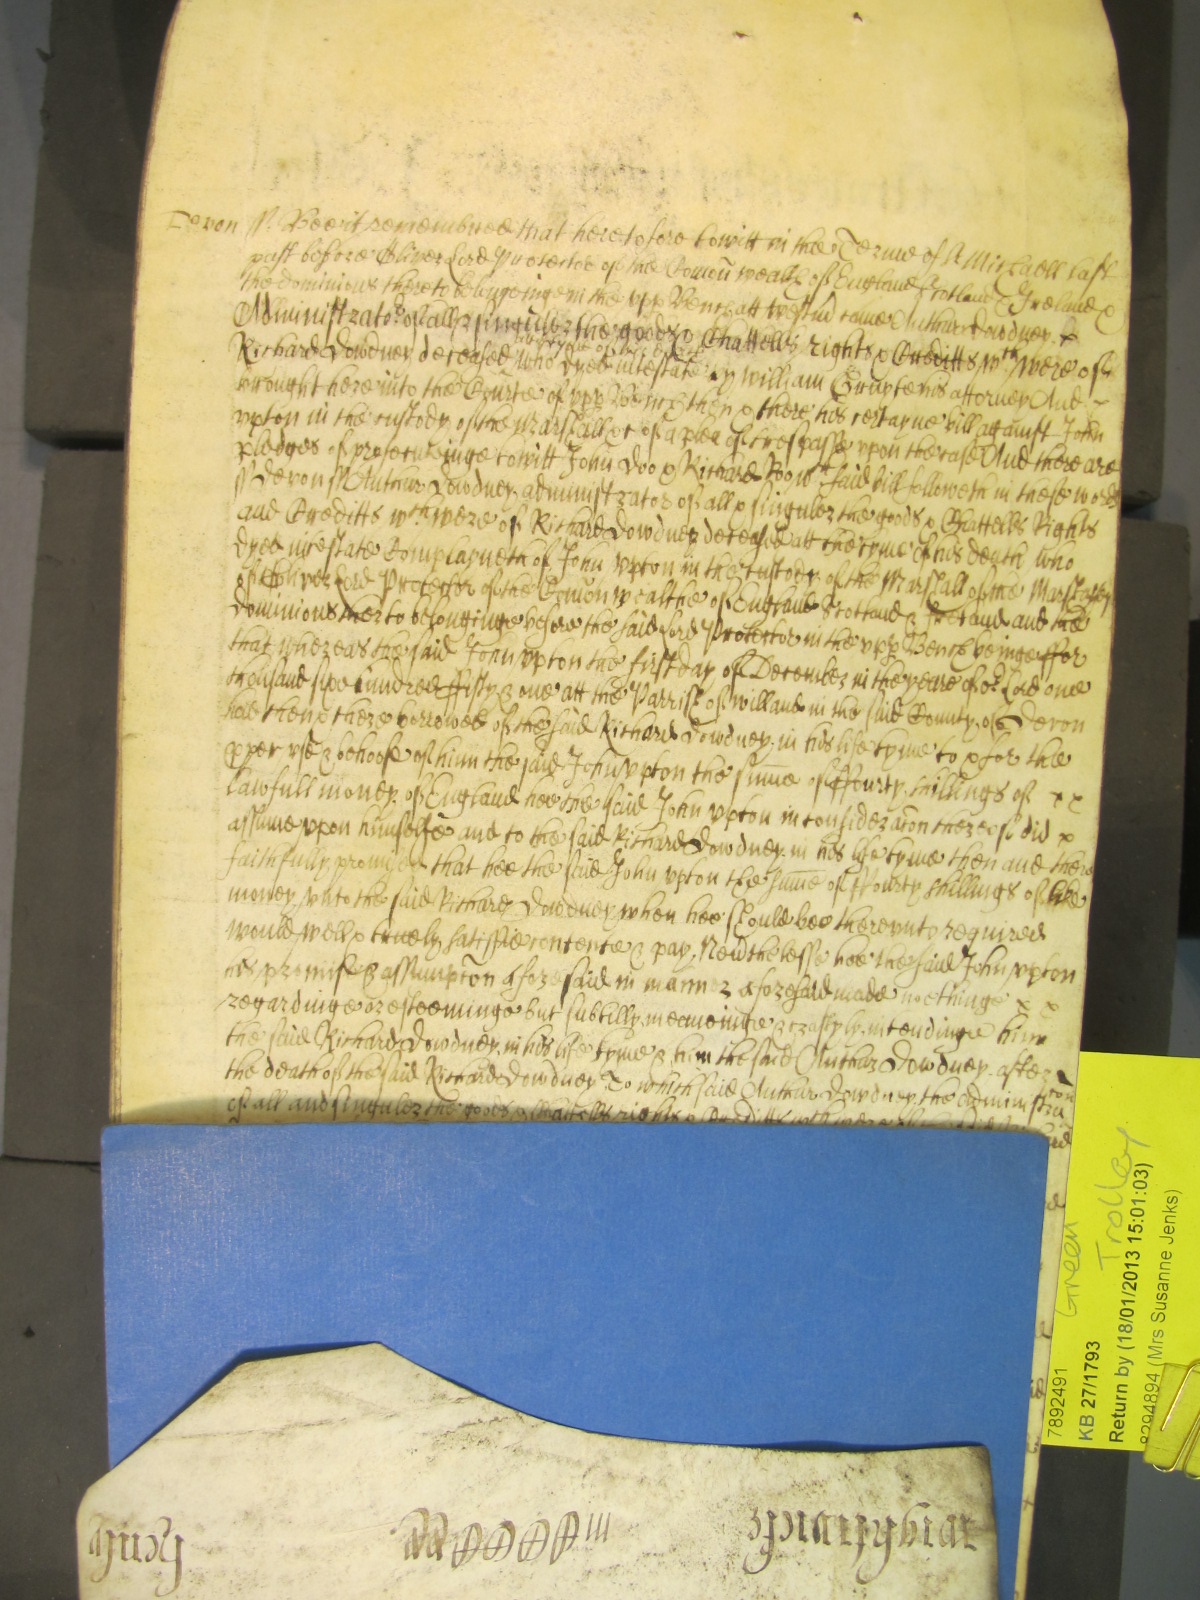 Devon ss. Bee it remembred that heretofore to witt in the Terme of St Michaell last
past before Oliver Lord Protector of the Comon wealth of England Scotland & Ireland &
the dominions thereto belongeinge in the upp Bench att Westm came Arthur Dowdney x
Administrator of all & singuler the goods & Chattells rights & Creditts wch were of
Richard Dowdney deceased who dyed intestate by William his attorney And
brought here into the Courte of upp Bench then & there his certayne bill against John
Upton in the custody of the Marshall &c of a plea of trespasse upon the case And there are
pledges of prosecuteinge to witt John Doo & Richard Roo wch said bill followeth in these words
ss Devon ss Arthur Dowdney administrator of all & singuler the goods & Chattells Rights
and Creditts wch were of Richard Dowdney deceased att the tyme of his death who
dyed intestate Complayneth of John Upton in the custody of the Marshall of the Marshalsey
of Oliver Lord Protector of the Comon wealthe of England Scotland & Ireland and the
dominions therto belonginge before the said Lord Protector in the upp Bench beinge ffor
that whereas the said John Upton the first day of December in the yeare of or Lord one
thousand sixe hundred ffifty & one att the Parrish of Willand in the said County of Devon
had then & there borrowed of the said Richard Dowdney in his life tyme to & for the
pper use & behoofe of him the said John Upton the sume of ffourty shillings of x x
lawfull money of England hee the said John Upton in consideracon thereof did x
assume upon himselfe and to the said Richard Dowdney in his life tyme then and there
faithfully promise that hee the said John Upton the sume of ffourty shillings of like
money unto the said Richard Dowdney when hee should bee thereunto required
would well & truely satisfie contente & pay Neverthelesse hee the said John Upton
his promise & assumption aforesaid in manner aforesaid made noethinge x x
regardinge or esteeminge but subtilly meaneinge & craftyly intendinge him
the said Richard Dowdney in his life tyme & him the said Arthur Dowdney after
the death of the said Richard Dowdney To which said Arthur Dowdney the administracon
of all and singuler the goods & chattells rights & Creditts wch were
Green
Trolley
7892491
KB 27/1793
Return by (18/01/2013 15:01:03)
8294894 (Mrs Susanne Jenks)